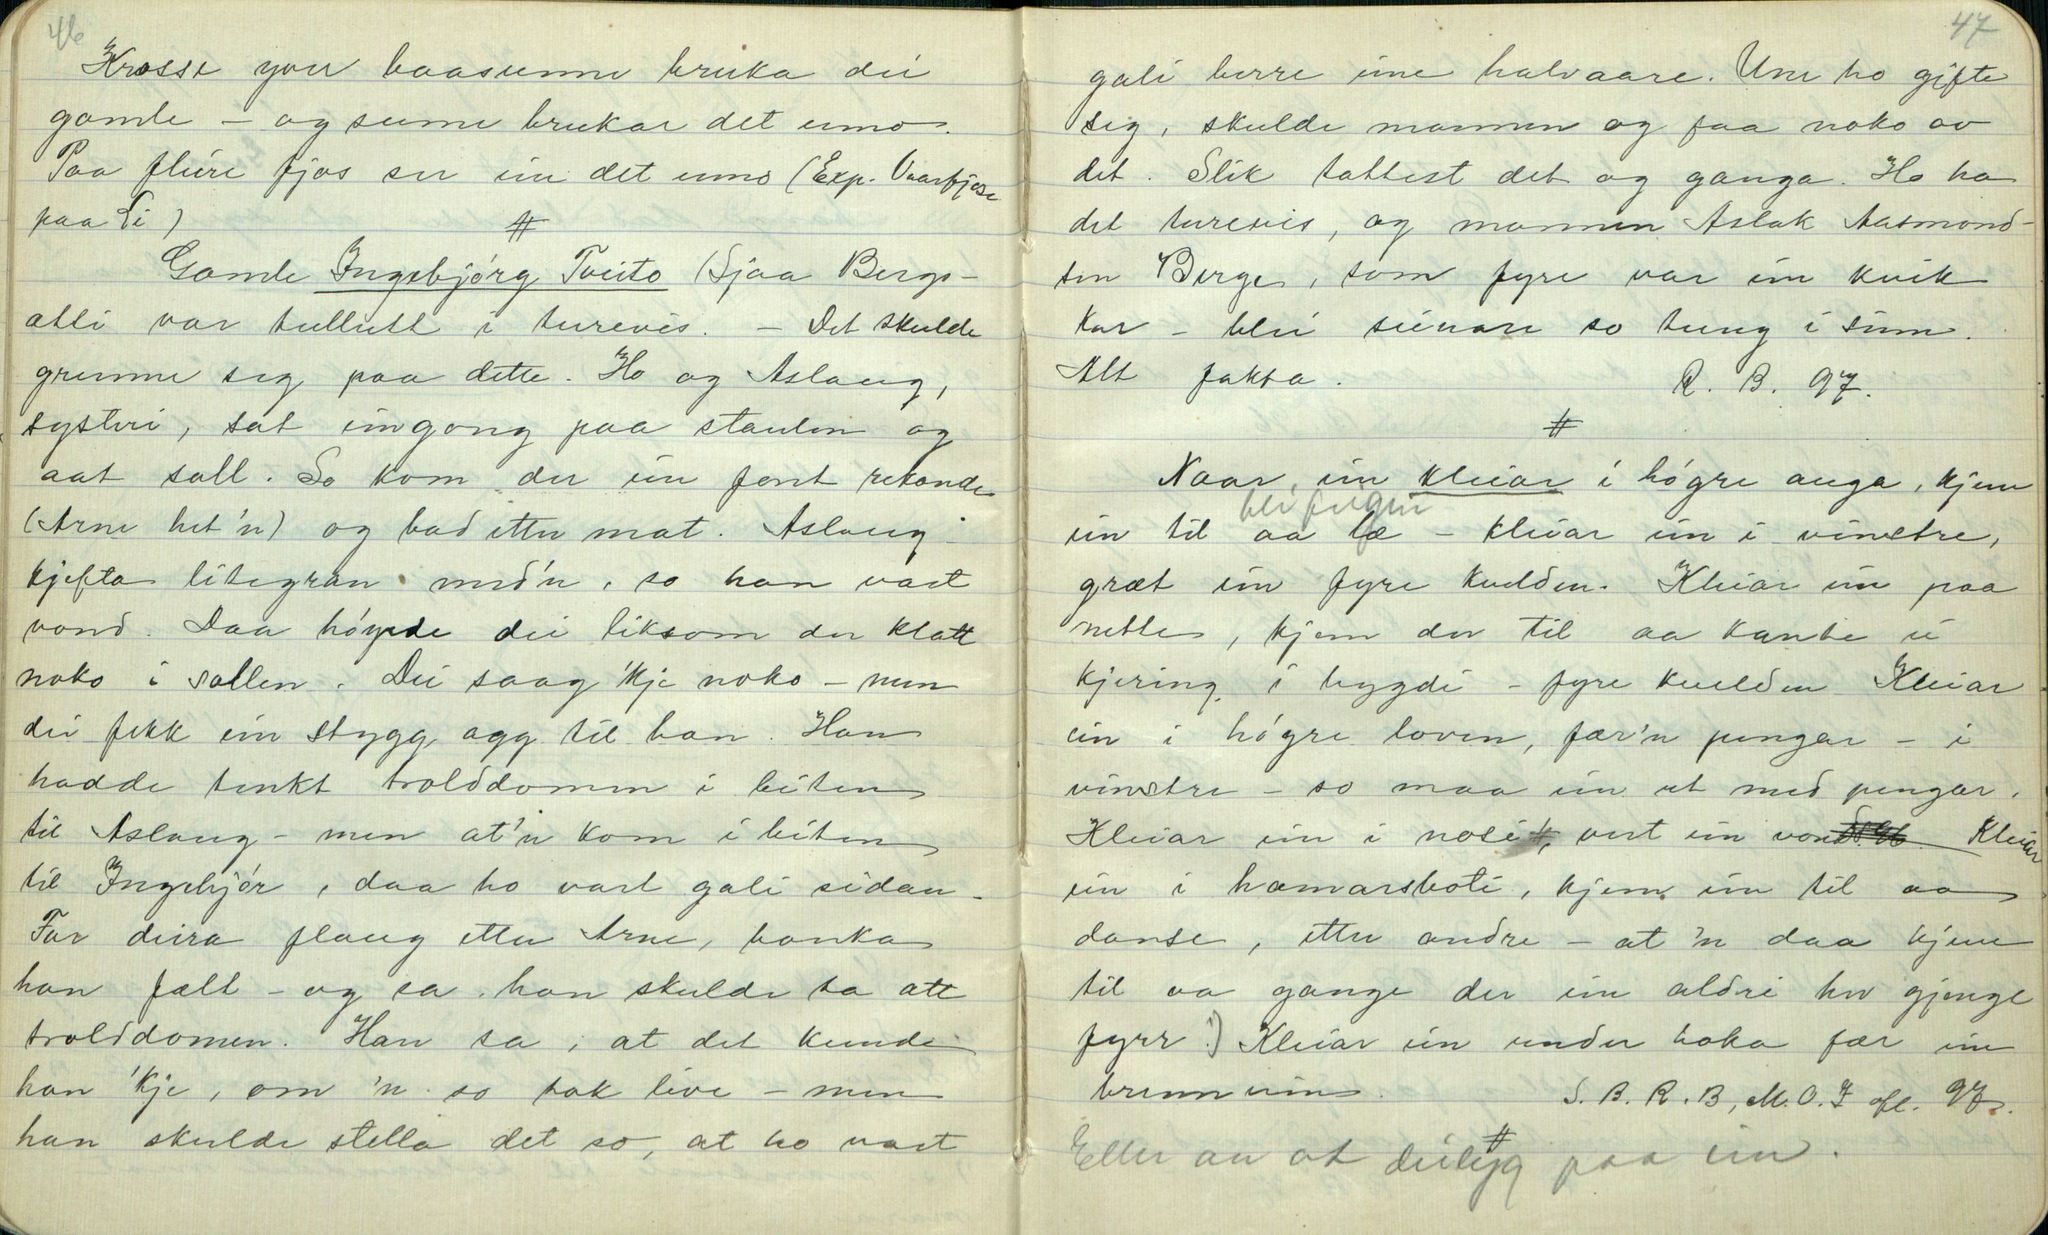 46
Krosse yver baasunne bruka dei
gamle – og sume brukar det enno.
Paa fleire fjos ser ein det enno (Exp. Vaarfjose
paa Li)
#
Gamle Ingebjørg Tveito (Sjaa Bergs-
atli var tullutt i turevis. – Det skulde
grunne seg paa dette. Ho og Aslaug,
systeri, sat eingong paa staulen og
aat soll. So kom der ein fent rekande
(Arne het'n) og bad etter mat. Aslaug
kjefta litegran med'n, so han vart
vond. Daa høyrde dei liksom der klatt
noko i sollen. Dei saag 'kje noko – men
dei fekk ein stygg agg til han. Han
hadde tenkt trolddomen i biten
til Aslaug – men at'n kom i biten
til Ingebjør, daa ho vart gali sidan.
Far deira flaug etter Arne, banka
han fælt – og sa han skulde ta att
trolddomen. Han sa, at det kunde
han 'kje, om 'n so tok live – men
han skulde stella det so, at ho vart
47
gali berre eine halvaare. Um ho gifte
seg, skulde mannen og faa noko av
det. Slik tottest det og ganga. Ho ha
det turevis, og mannen Aslak Aasmond-
sen Berge, som fyre var ein kvik
kar – blei seinare so tung i sinn.
Alt fakta. R. B. 97.
#
Naar ein kleiar i høgre auga, kjem
bli feigin
ein til aa læ – kleiar ein i vinstre,
græt ein fyre kvelden. Kleiar ein paa
nette, kjem der til aa kante ei
kjering i bygdi – fyre kvelden Kleiar
ein i høgre loven, fær'n pengar – i
vinstre – so maa ein ut med pengar.
Kleiar ein i nosi, vert ein vond. Kleiar
ein i hamarsboti, kjem ein til aa
danse, etter andre – at 'n daa kjem
til aa gange der ein aldri hev gjenge
fyrr.¹) Kleiar ein under haka fær ein
brennevin. S. B. R. B, M. O. T ofl. 97.
#
Eller an at dei lyg paa ein.